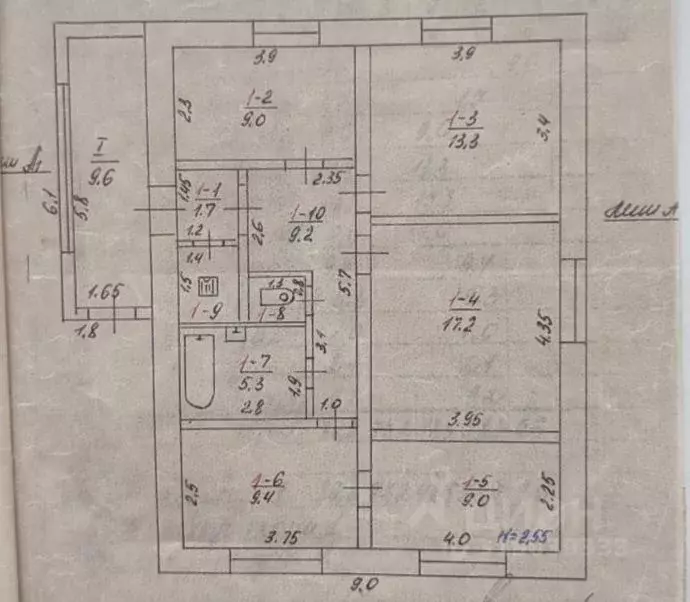 3,9
3,9
2,3
1-2
9.0
1-3
13,3
3,4
I
9.6
6,1
5,8
1,45
1-1
1.7
1.2
2.35
1-10
9.2
2,6
1.4
1,5
1-9
1,3
0,8
1-8
5.7
1-4
17.2
4.35
1.65
1.8
3,1
1-7
5.3
2.8
1,9
1.0
3.95
2,5
1-6
9.4
1-5
9.0
2.25
3.75
4.0
H=2,55
9.0